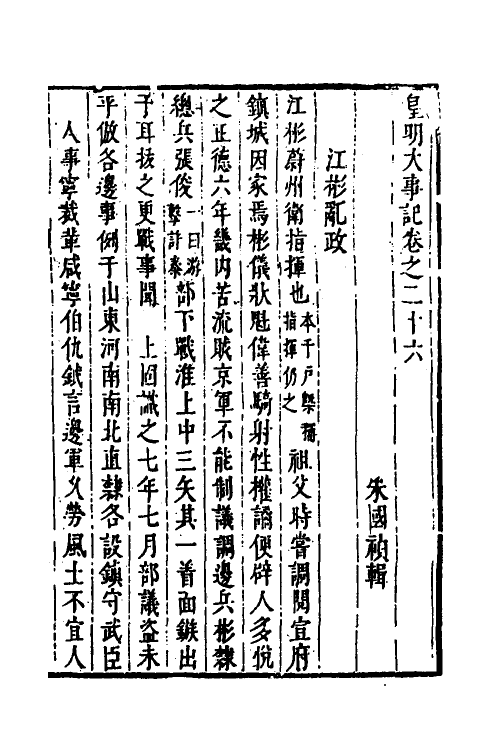 皇明大事記卷之二十六
朱國禎輯
江彬亂政
江彬蔚州衛指揮也本千戶槩稱指揮仍之祖父時嘗調閱宣府
鎮城因家焉彬儀狀魁偉善騎射性權譎便辟人多悅
之正德六年畿內苦流賊京軍不能制議調邊兵彬隸
總兵張俊一曰游擊許泰部下戰淮上中三矢其一首面鏃出
于耳拔之更戰事聞 上固識之七年七月部議盜未
平倣各邊事例于山東河南南北直隸各設鎮守武臣
人事寧裁革咸寧伯仇鉞言邊軍久勞風土不宜人